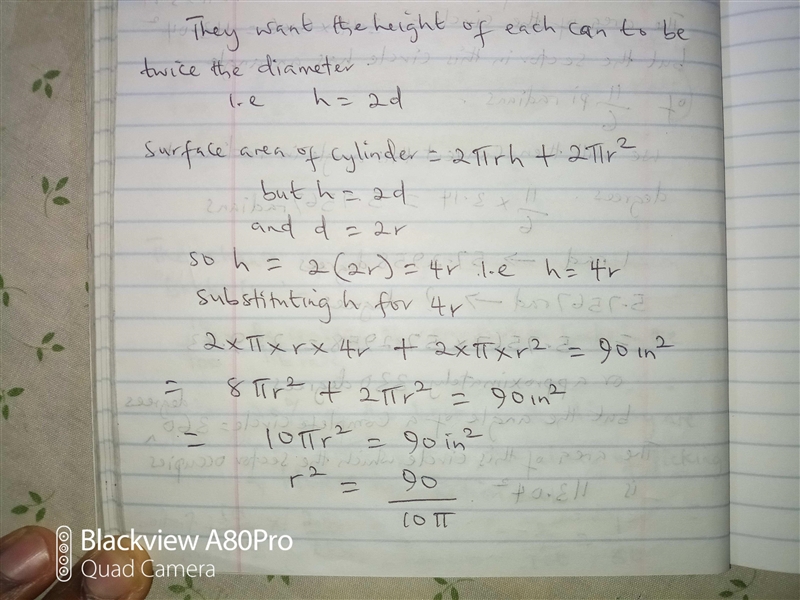 They want the height of each can to be
twice the diameter.
i.e h = 2d
Surface area of cylinder = 2πrh + 2πr²
but h = 2d
and d = 2r
so h = 2(2r) = 4r i.e h = 4r
Substituting h for 4r
2×π×r×4r + 2×π×r² = 90in²
= 8πr² + 2πr² = 90in²
= 10πr² = 90in²
r² = 90
10π
Blackview A80Pro
Quad Camera